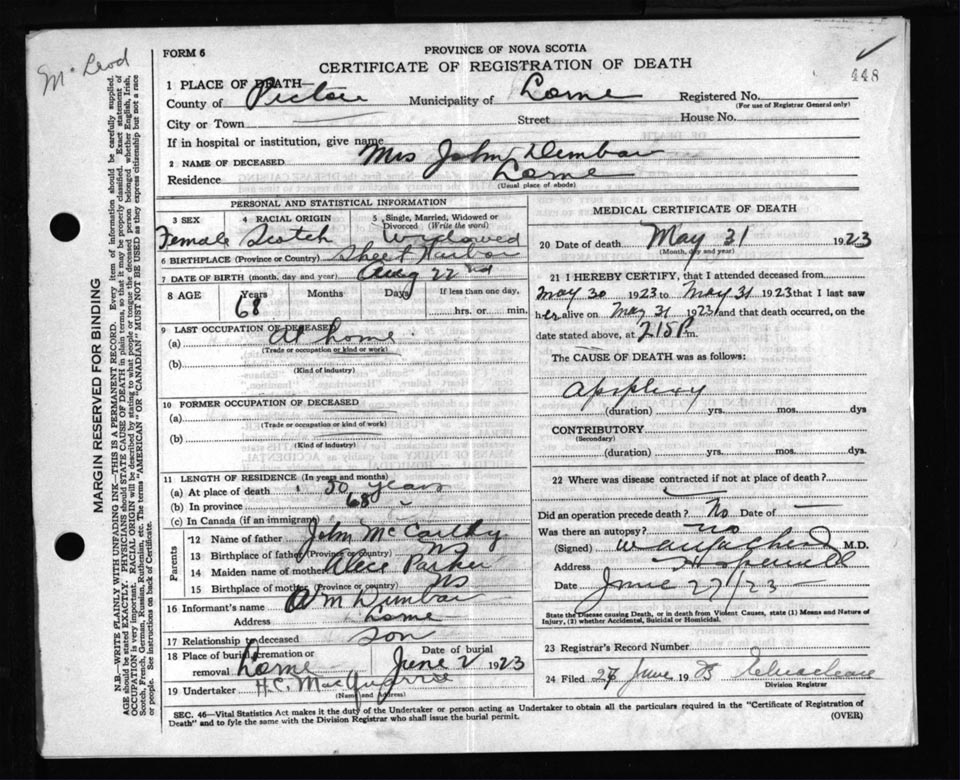 McLeod
FORM 6
PROVINCE OF NOVA SCOTIA
CERTIFICATE OF REGISTRATION OF DEATH
448
1 PLACE OF DEATH—
County of Pictou Municipality of Lorne Registered No.
(For use of Registrar General only)
City or Town Street House No.
If in hospital or institution, give name
2 NAME OF DECEASED Mrs John Dunbar
Residence Lorne
(Usual place of abode)
PERSONAL AND STATISTICAL INFORMATION
3 SEX 4 RACIAL ORIGIN 5 Single, Married, Widowed or Divorced (Write the word)
Female Scotch Widowed
6 BIRTHPLACE (Province or Country) Sheet Harbor
7 DATE OF BIRTH (month, day and year) Aug 22nd
8 AGE Years Months Days If less than one day,
68 hrs. or min.
9 LAST OCCUPATION OF DECEASED
(a) At home
(Trade or occupation or kind or work)
(b)
(Kind of industry)
10 FORMER OCCUPATION OF DECEASED
(a)
(Trade or occupation or kind of work)
(b)
(Kind of industry)
11 LENGTH OF RESIDENCE (In years and months)
(a) At place of death 50 years
(b) In province 68
(c) In Canada (if an immigrant)
Parents
12 Name of father John McCarthy
13 Birthplace of father (Province or country) NS
14 Maiden name of mother Alice Parker
15 Birthplace of mother (Province or country) NS
16 Informant's name Wm Dunbar
Address Lorne
17 Relationship to deceased son
18 Place of burial, cremation or removal Lorne Date of burial June 2 1923
19 Undertaker H.C. MacQuarrie
(Name and Address)
MEDICAL CERTIFICATE OF DEATH
20 Date of death May 31 1923
(Month, day and year)
21 I HEREBY CERTIFY, that I attended deceased from
May 30 1923 to May 31 1923 that I last saw
her alive on May 31 1923 and that death occurred, on the
date stated above, at 2.15 P m.
The CAUSE OF DEATH was as follows:
Apoplexy
(duration) yrs. mos. dys
CONTRIBUTORY
(Secondary)
(duration) yrs. mos. dys.
22 Where was disease contracted if not at place of death?
Did an operation precede death? No Date of —
Was there an autopsy? no
(Signed) M.D.
Address Hopewell
Date June 27/23
State the Disease causing Death, or in death from Violent Causes, state (1) Means and Nature of
Injury, (2) whether Accidental, Suicidal or Homicidal.
23 Registrar's Record Number
24 Filed 27 June 19
Division Registrar
SEC. 46—Vital Statistics Act makes it the duty of the Undertaker or person acting as Undertaker to obtain all the particulars required in the "Certificate of Registration of
Death" and to fyle the same with the Division Registrar who shall issue the burial permit.
(OVER)
MARGIN RESERVED FOR BINDING
N.B.—WRITE PLAINLY WITH UNFADING INK—THIS IS A PERMANENT RECORD. Every item of information should be carefully supplied.
AGE should be stated EXACTLY. PHYSICIANS should STATE CAUSE OF DEATH in plain terms, so that it may be properly classified. Exact statement of
OCCUPATION is very important. RACIAL ORIGIN will be described by stating to what people or tongue the deceased person belonged whether English, Irish,
Scotch, French, German, Russian, Ruthenian, etc. The terms "AMERICAN" OR "CANADIAN" MUST NOT BE USED as they express citizenship but not a race
or people. See instructions on back of Certificate.